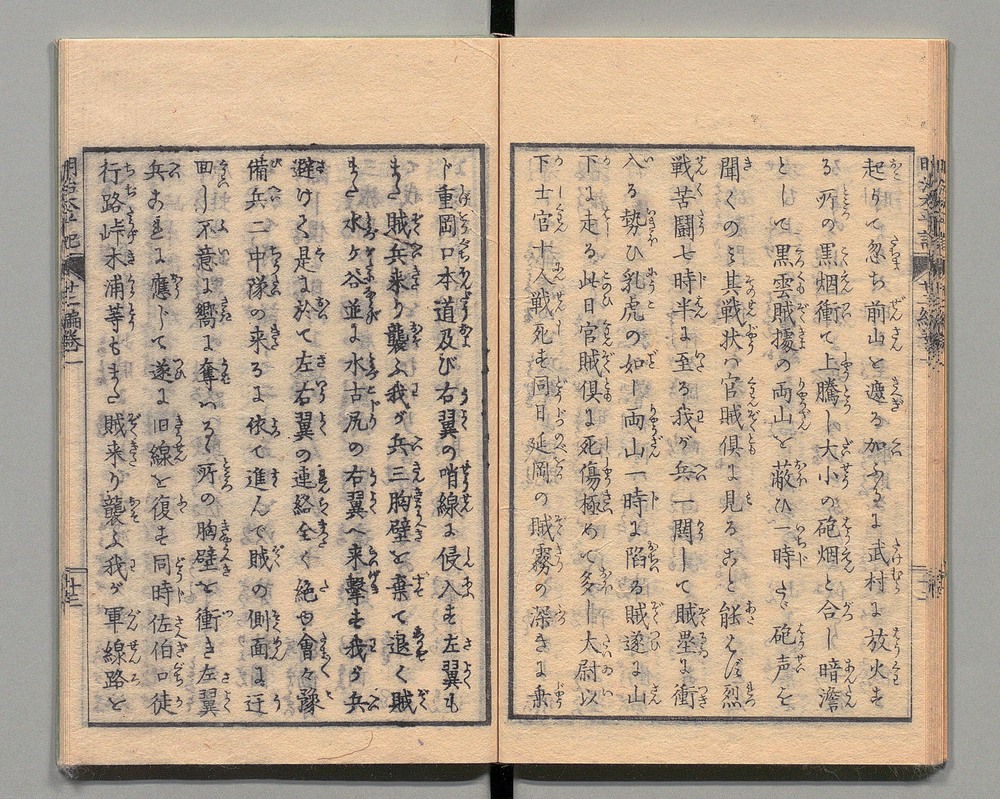 起りて忽ち前山を遮る加ふるに武村に放火す
る所の黒烟衝て上騰し大小の砲烟と合し暗澹
として黒雲賊據の両山を蔽ひ一時は砲声を
聞くのミ其戦状ハ官賊倶に見ること能はず烈
戦苦闘七時半に至る我が兵一鬨して賊塁に衝
入る勢ひ乳虎の如し両山一時に陥る賊遂に山
下に走る此日官賊倶に死傷極めて多し大尉以
下士官十人戦死す同日延岡の賊霧の深きに乗
ド重岡口本道及び右翼の哨線に侵入す左翼も
また賊兵来り襲ふ我が兵三胸壁を棄て退く賊
また水ヶ谷並に水古尻の右翼へ来撃す我が兵
避けく是に於て左右翼の連絡全く絶ゆ會々豫
備兵二中隊の来るに依て進んで賊の側面に迂
回し不意に嚮に奪はるゝ所の胸壁を衝き左翼
兵これに應じて遂に旧線を復す同時佐伯口徒
行路峠木浦等もまた賊来り襲ふ我が軍線路を
明治太平記
廿二編巻一
十二